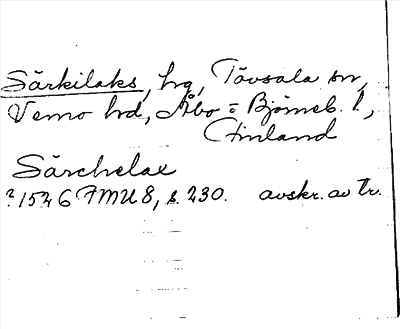 Särkilaks, hg, Tövsala sn,
Vemo hd, Åbo = Björneb. l.,
Finland
Särchelax
? 1546 FMU 8, s. 230. avskr. av Tr.